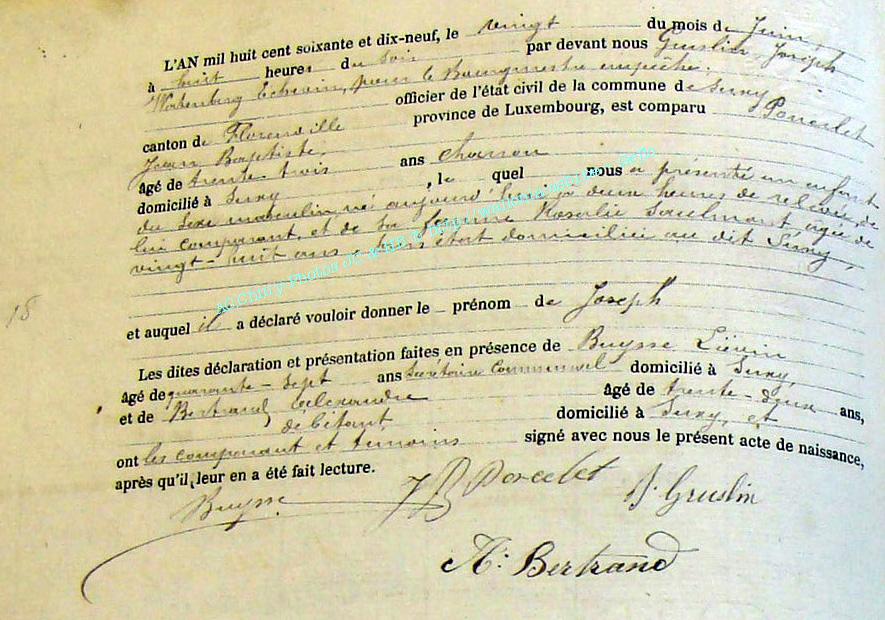 L'AN mil huit cent soixante et dix-neuf, le vingt du mois de Juin,
à huit heures du soir par devant nous Gruslin Joseph
Echevin, pour le Bourgmestre empêché,
officier de l'état civil de la commune de Suxy
canton de Florenville province de Luxembourg, est comparu Poncelet
Jean Baptiste
âgé de trente trois ans charron
domicilié à Suxy , le quel nous a présenté un enfant
du sexe masculin, né aujourd'hui à deux heures de relevée, de
lui comparant, et de sa femme Rosalie Saulmont, agée de
vingt-huit ans, domiciliée au dit Suxy,
et auquel il a déclaré vouloir donner le prénom de Joseph
Les dites déclaration et présentation faites en présence de Buysse Liévin
âgé de quarante-sept ans Secrétaire Communal domicilié à Suxy,
et de Bertrand Alexandre âgé de trente-deux ans,
débitant domicilié à Suxy, et
ont les comparant et temoins signé avec nous le présent acte de naissance,
après qu'il leur en a été fait lecture.
Buysse JB Poncelet J. Gruslin
A. Bertrand
18